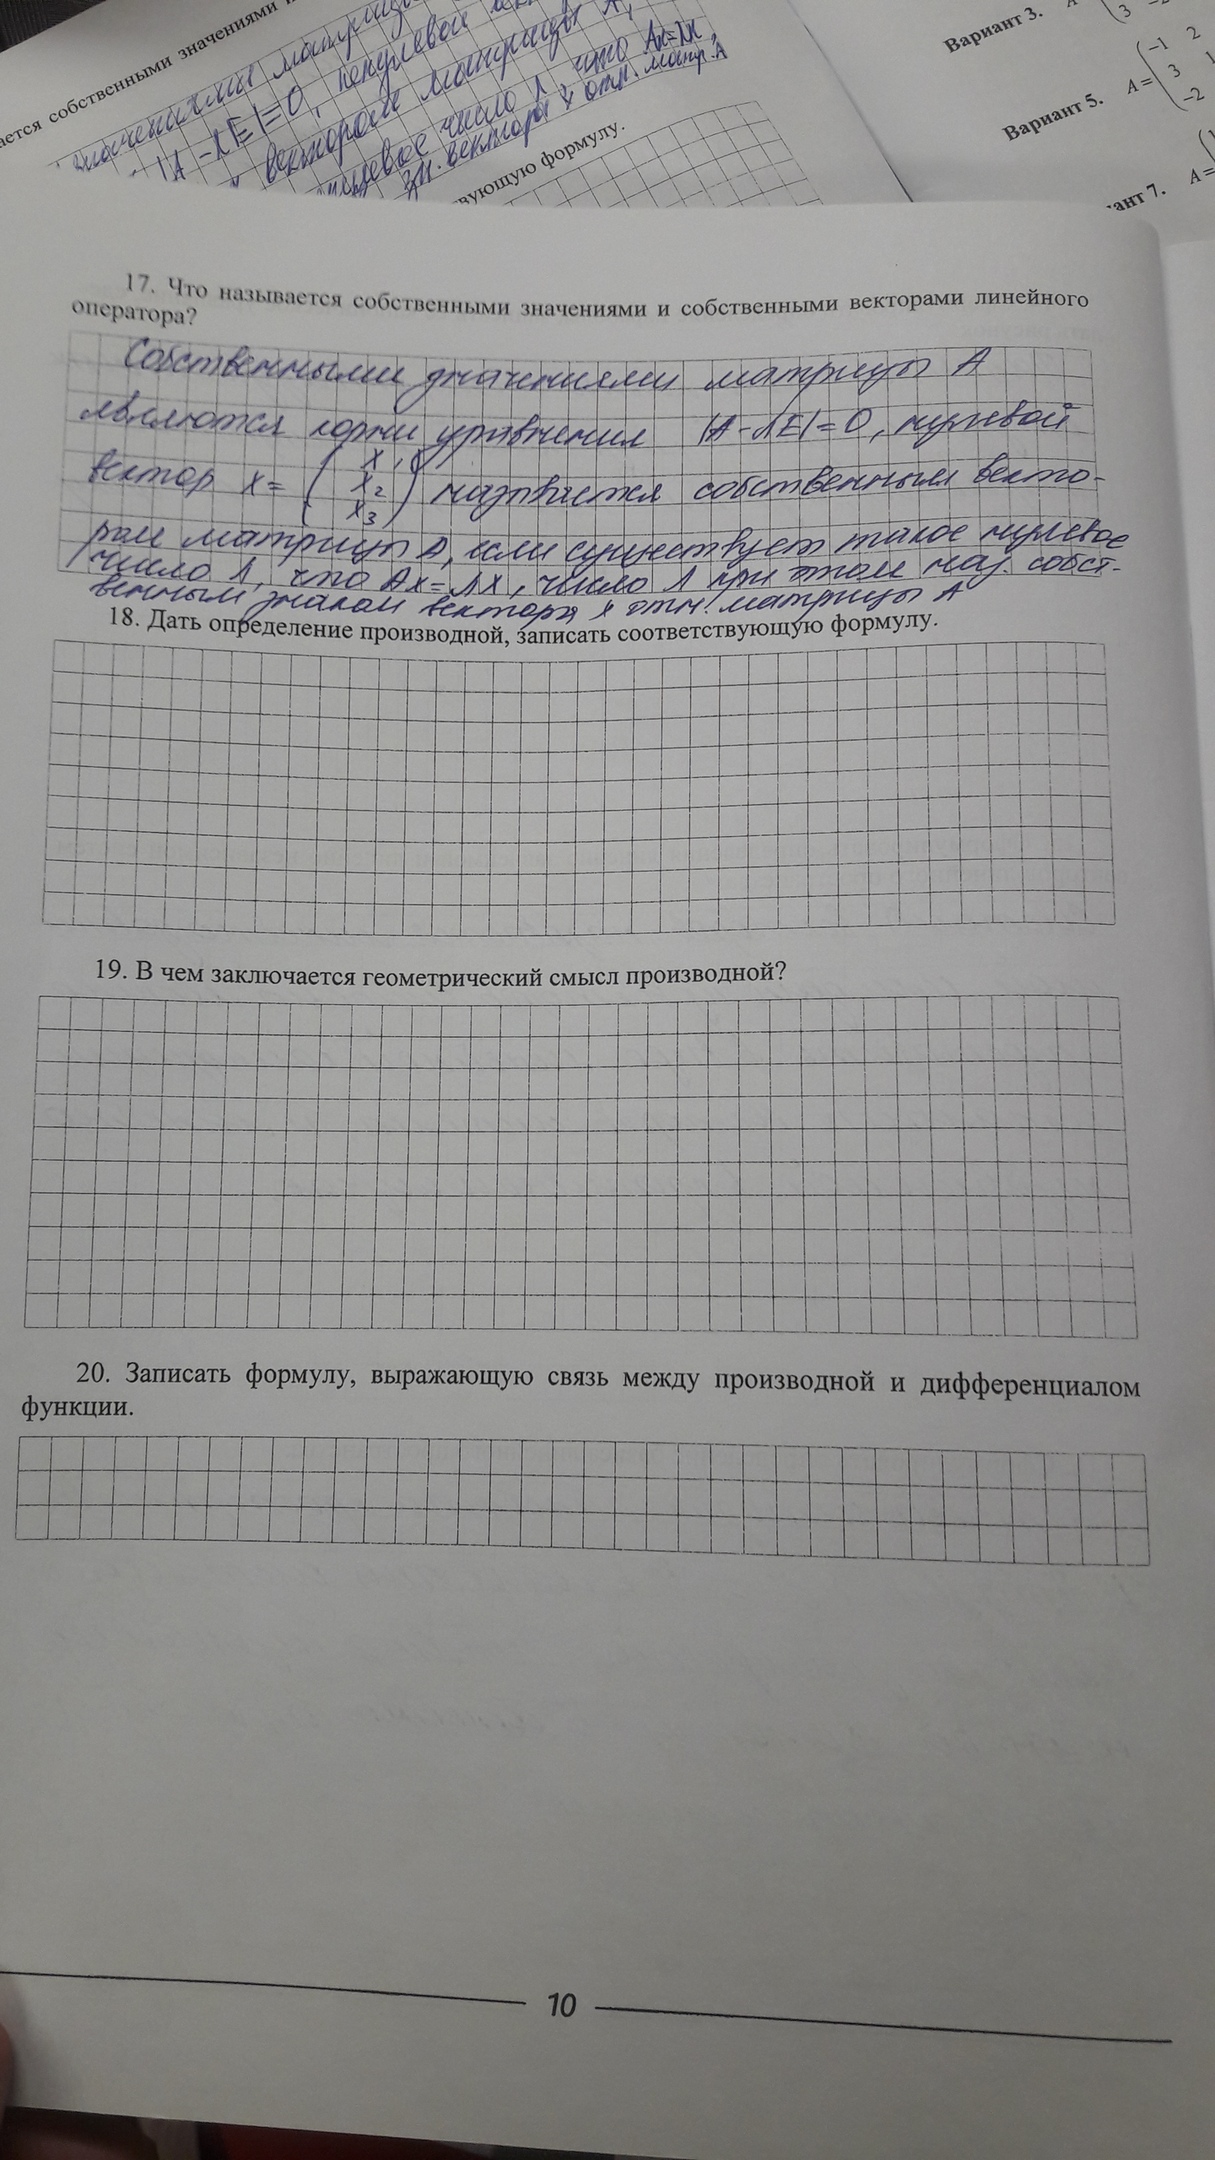 ается собственными значениями
значениями матрицы
|A-λE|=0, ненулевой
вектором матрицы A,
число λ, что Ax=λx,
зн. вектора x отн. матр. A
вующую формулу.
Вариант 3. A
3 -2
Вариант 5. A =
-1 2
3 1
-2
ант 7. A =
17. Что называется собственными значениями и собственными векторами линейного
оператора?
Собственными значениями матрицы A
являются корни уравнения |A-λE|=0, нулевой
вектор x = ( x₁ x₂ x₃ ) называется собственным векто-
ром матрицы A, если существует такое нулевое
число λ, что Ax=λx, число λ при этом наз. собст-
венным знаком вектора x отн. матрицы A
18. Дать определение производной, записать соответствующую формулу.
19. В чем заключается геометрический смысл производной?
20. Записать формулу, выражающую связь между производной и дифференциалом
функции.
10